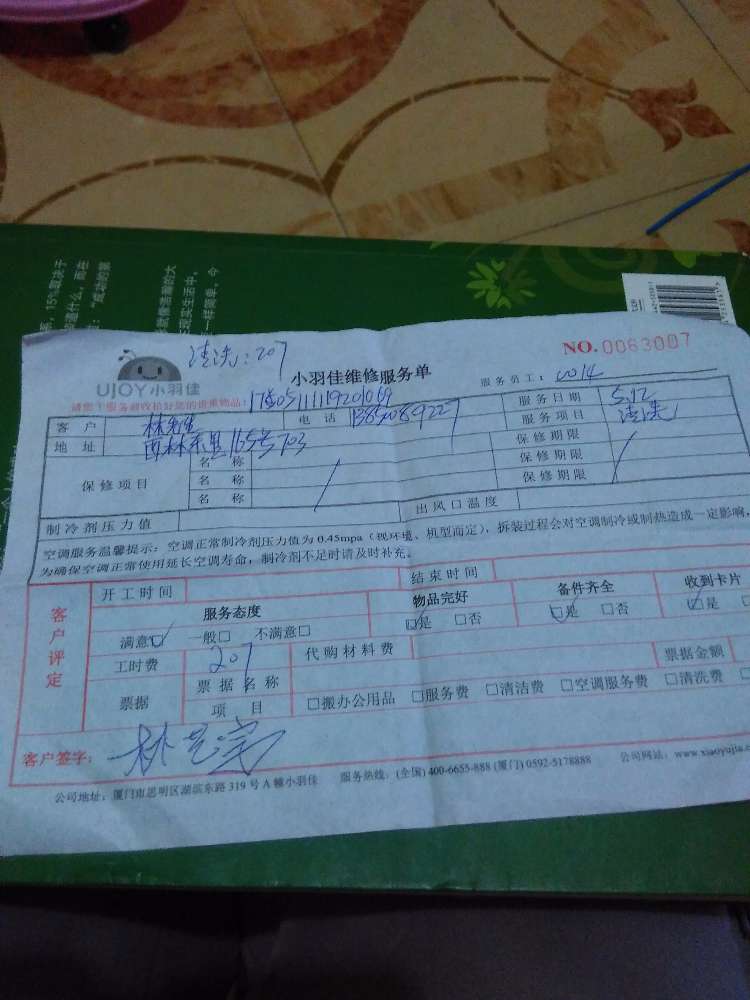 清洗:207
UJOY小羽佳
小羽佳维修服务单
NO.0063007
服务员工:
请您!服务前收检好您的贵重物品!
客户 林先生 电话 服务日期 5.12
地址 西林东里165号703 服务项目 清洗
保修项目 名称 保修期限
名称 保修期限
名称 保修期限
制冷剂压力值 出风口温度
空调服务温馨提示:空调正常制冷剂压力值为0.45mpa(视环境、机型而定),拆装过程会对空调制冷或制热造成一定影响,
为确保空调正常使用延长空调寿命,制冷剂不足时请及时补充。
客户评定
开工时间 结束时间
服务态度 物品完好 备件齐全 收到卡片
满意☑ 一般□ 不满意□ ☑是 □否 ☑是 □否 ☑是 □
工时费 207 代购材料费
票据 票据名称 票据金额
项目 □搬办公用品 □服务费 □清洁费 □空调服务费 □清洗费
客户签字:
公司地址:厦门市思明区湖滨东路319号A幢小羽佳 服务热线:(全国)400-6655-888 (厦门)0592-5178888 公司网站:www.xiaoyujia.c